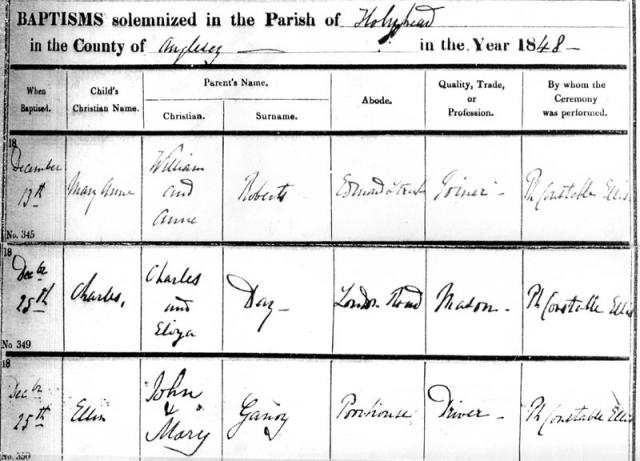 BAPTISMS solemnized in the Parish of Holyhead
in the County of Anglesey in the Year 1848
When Baptised. Child's Christian Name. Parent's Name. Christian. Surname. Abode. Quality, Trade, or Profession. By whom the Ceremony was performed.
18
December 13th Mary Anne William and Anne Roberts Edmund Street Joiner Ph Constable Ellis
No. 345
18
Decbr 25th Charles, Charles and Eliza Day London Road Mason Ph Constable Ellis
No 349
18
Decbr 25th Ellin John & Mary Poorhouse Ph Constable Ellis
No. 350